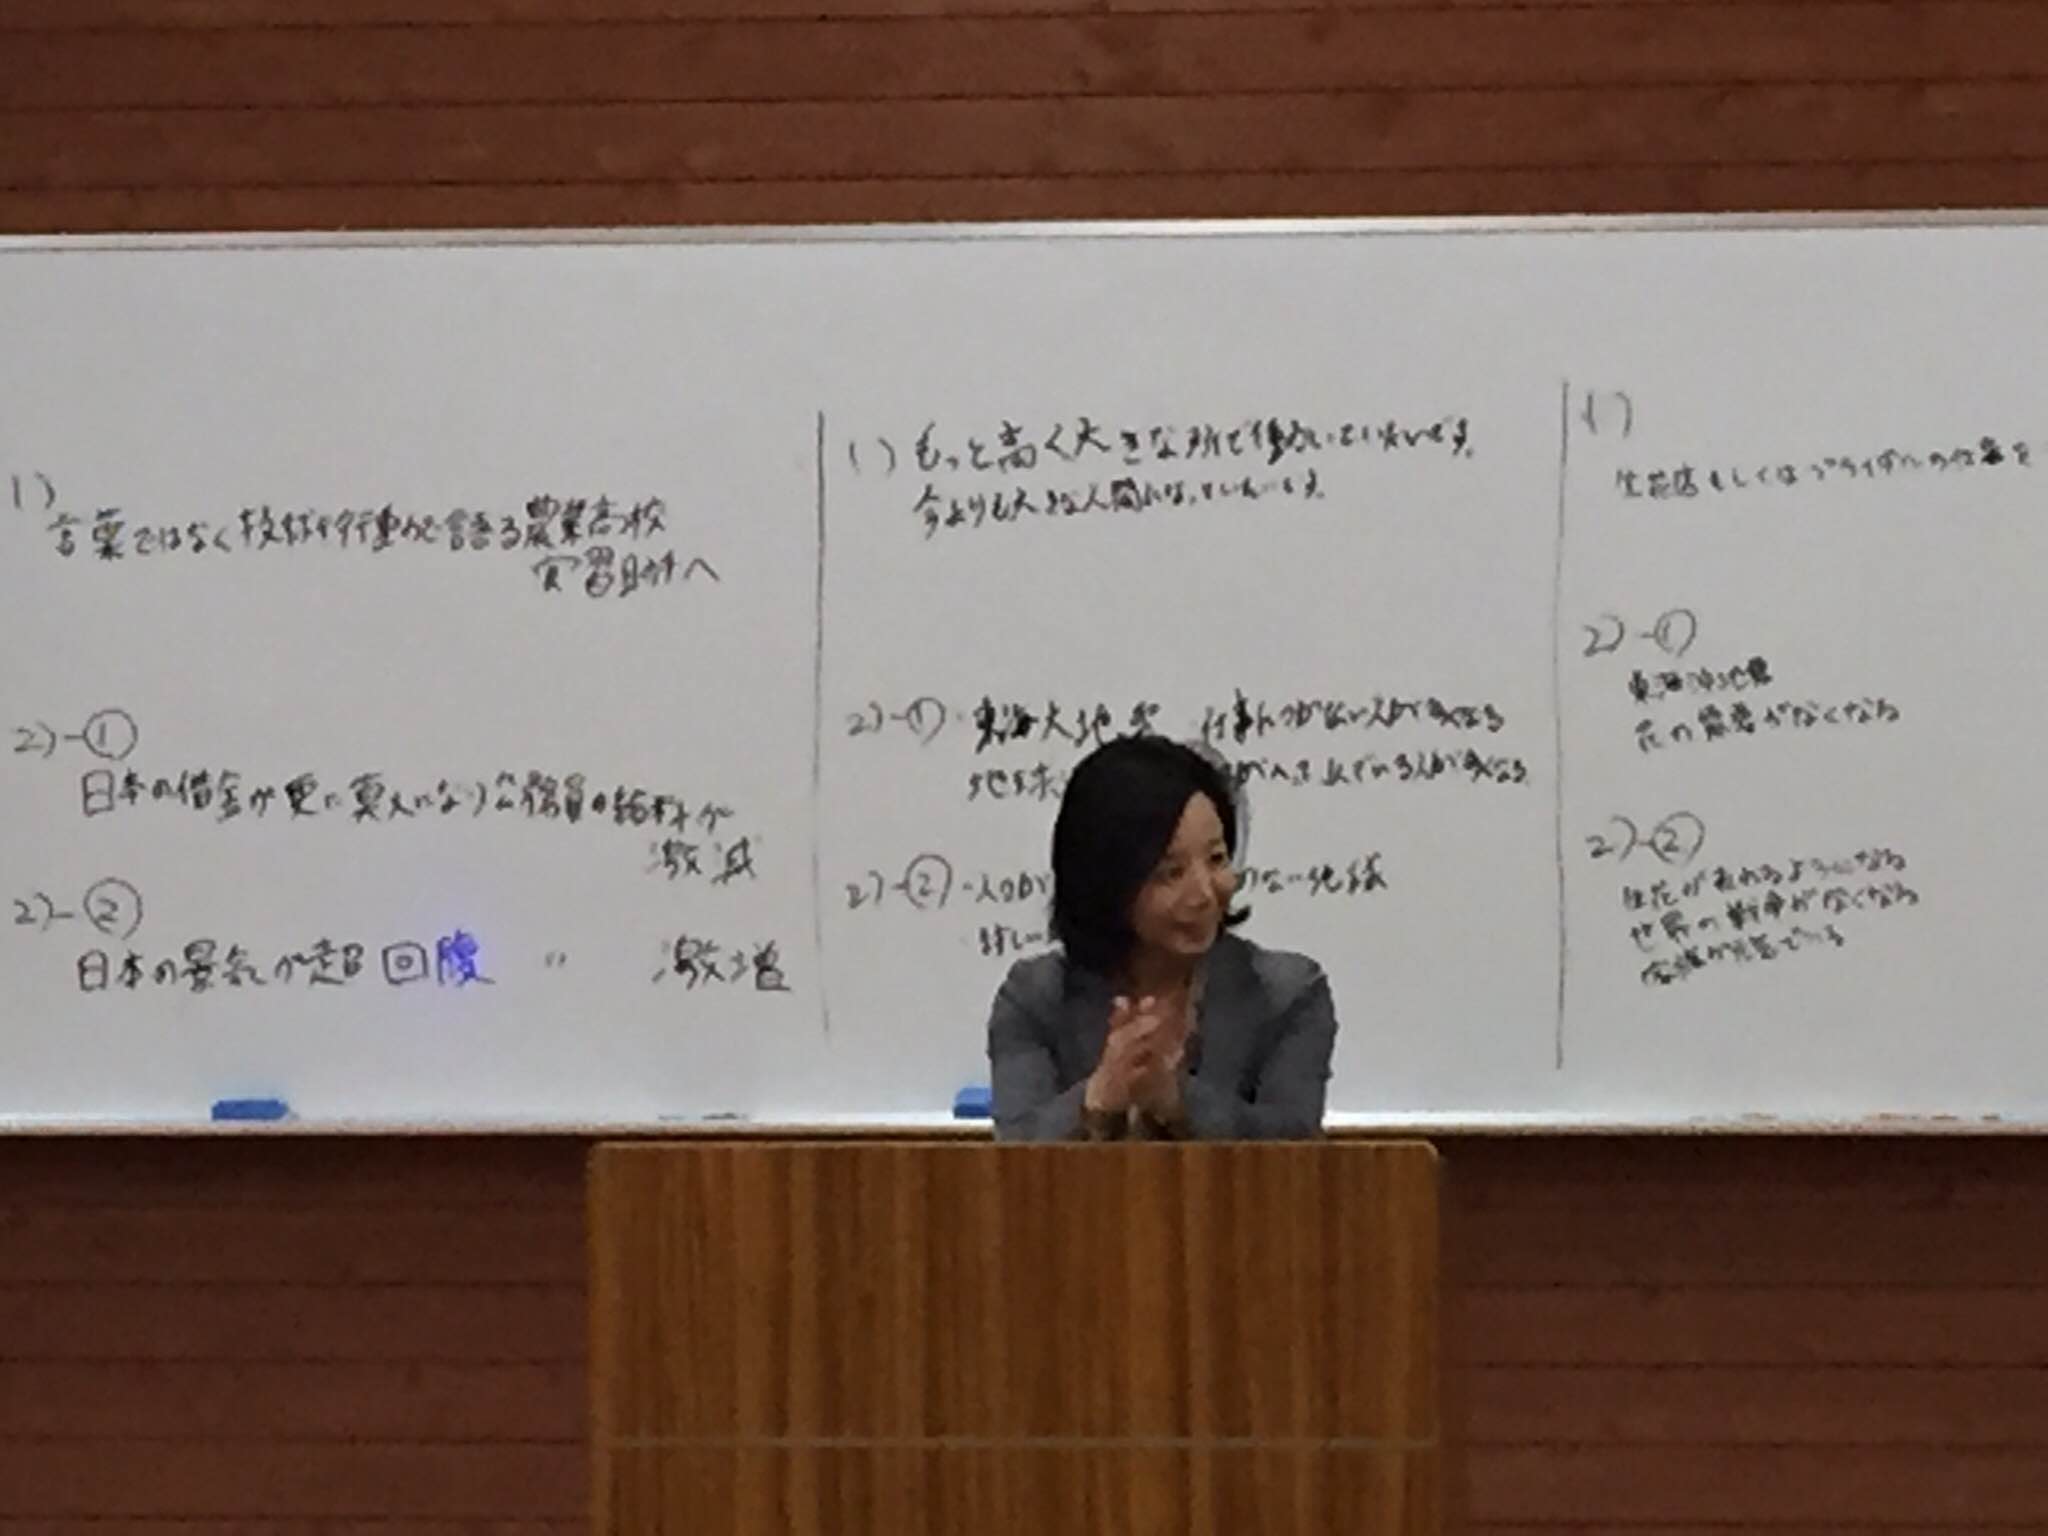 1)
言葉ではなく技術や行動で語る農業高校
実習助手へ
2)-①
日本の借金が更に莫大になり公務員の給料が
激減
2)-②
日本の景気が超回腹 〃 激増
1) もっと高く大きな所で働いていたいです。
今よりも大きな人間になっていたいです。
2)-① ・東海大地 仕事につかない人が多くなる
地球 が 出ている人が多くなる
2)-② ・人口が のない地球
1)
生花店もしくはブライダルの仕事を
2)-①
東海沖地震
花の需要がなくなる
2)-②
生花が売れるようになる
世界の戦争がなくなる
家族が元気でいる